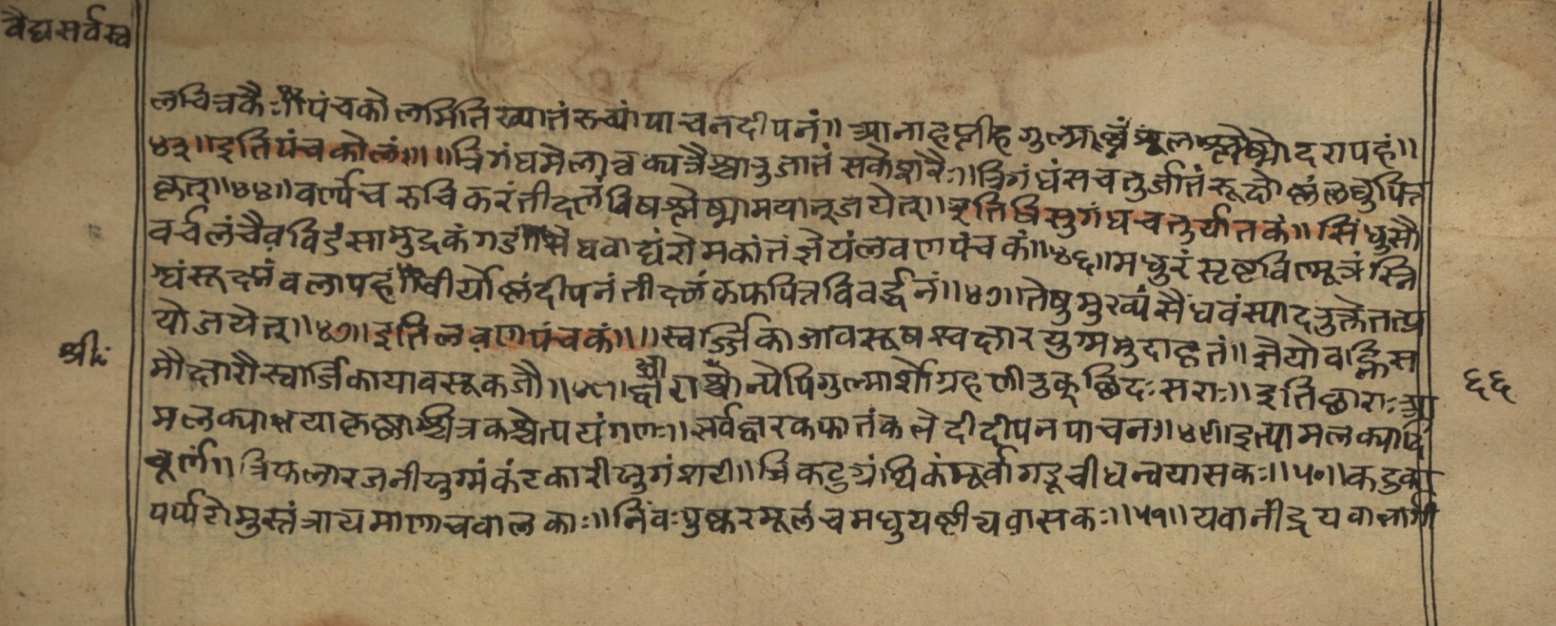 वैद्यसर्वस्व
लचित्रकैः॥पंचकोलमितिख्यातंरुच्यंपाचनदीपनं॥आनाहप्लीहगुल्मार्त्तंशूलश्लेष्मोदरापहं॥
४३॥इतिपंचकोलं॥॥त्रिगंधमैलात्वक्पत्रैश्चातुजातंसकेशरैः॥त्रिगंधंसचतुर्जातंरूक्षोष्णंलघुपित्त
कृत्॥४४॥वर्ण्यंचरुचिकरंतीक्ष्णंविषश्लेष्मामयान्जयेत्॥इतित्रिसुगंधचतुर्यातकं॥सिंधुसौ
वर्चलंचैवविडंसामुद्रकंगडं॥सैधवाद्यंरोमकांतंज्ञेयंलवणपंचकं॥४६॥मधुरंसृष्टविण्मूत्रंस्नि
ग्धंसूक्ष्मंबलापहं॥वीर्योष्णंदीपनंतीक्ष्णंकफपित्तविवर्द्धनं॥४७॥तेषुमुख्यंसैंधवंस्यादनुक्तेतत्प्र
योजयेत्॥४७॥इतिलवणपंचकं॥॥स्वर्ज्जिकाजावसूषश्वक्षारयुग्ममुदाहृतं॥ज्ञेयोवह्निस
श्रीः
मौक्षारौस्वार्जिकायावसूकजौ॥क्षाराश्चान्येपिगुल्मार्शोग्रहणीरुक्छिदःसराः॥इतिक्षाराःआ
६६
मलक्याभयाकृष्णाश्चित्रकश्चेत्पयंगणः॥सर्वज्वरकफातंकलेदीदीपनपाचनः॥४९॥इत्यामलक्यादि
चूर्णं॥त्रिफलारजनीयुग्मंकंटकारीयुगंशटी॥त्रिकटुग्रंथिकंमूर्वागडूचीधन्वयासकः॥५०॥कटुका
पर्पटोमुस्तंत्रायमाणाचवालकाः॥निंबःपुष्करमूलंचमधुयष्टीचवासकः॥५१॥यवानींद्रयवाभार्गी